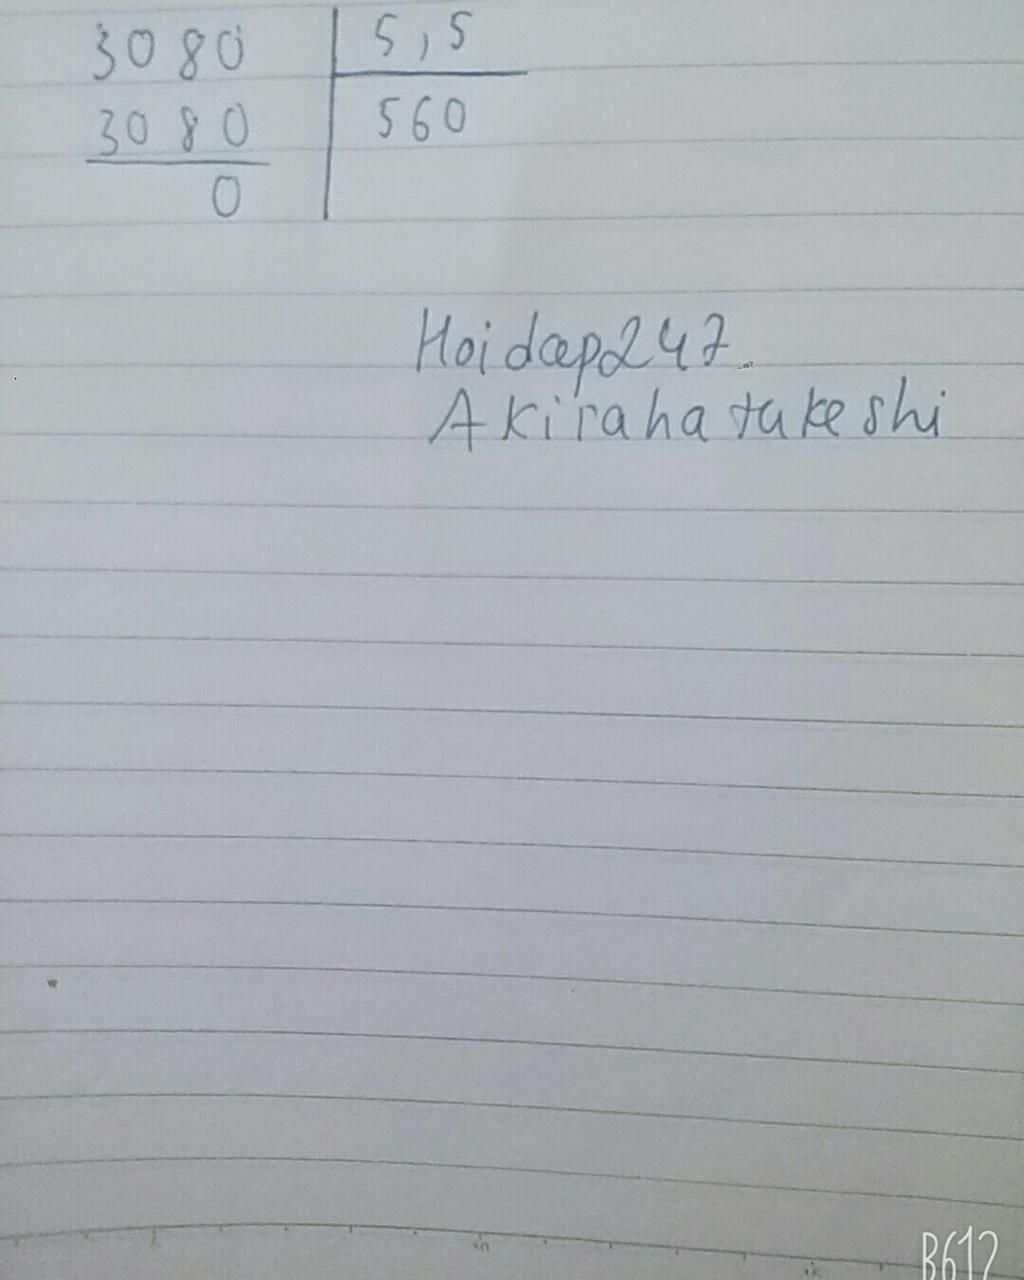 3080 5,5
3080 560
0
Hoidap247
Akirahatakeshi
B612